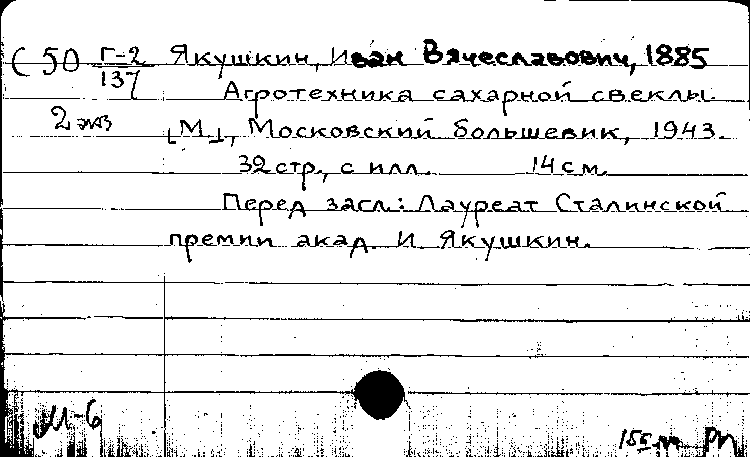 С 50 Г-2 Якушкин, Иван Вячеславович, 1885
137
Агротехника сахарной свеклы.
2 экз
[М.], Московский большевик, 1943.
32 стр., с илл. 14 см.
Перед загл.: Лауреат Сталинской
премии акад. И. Якушкин.
М-6